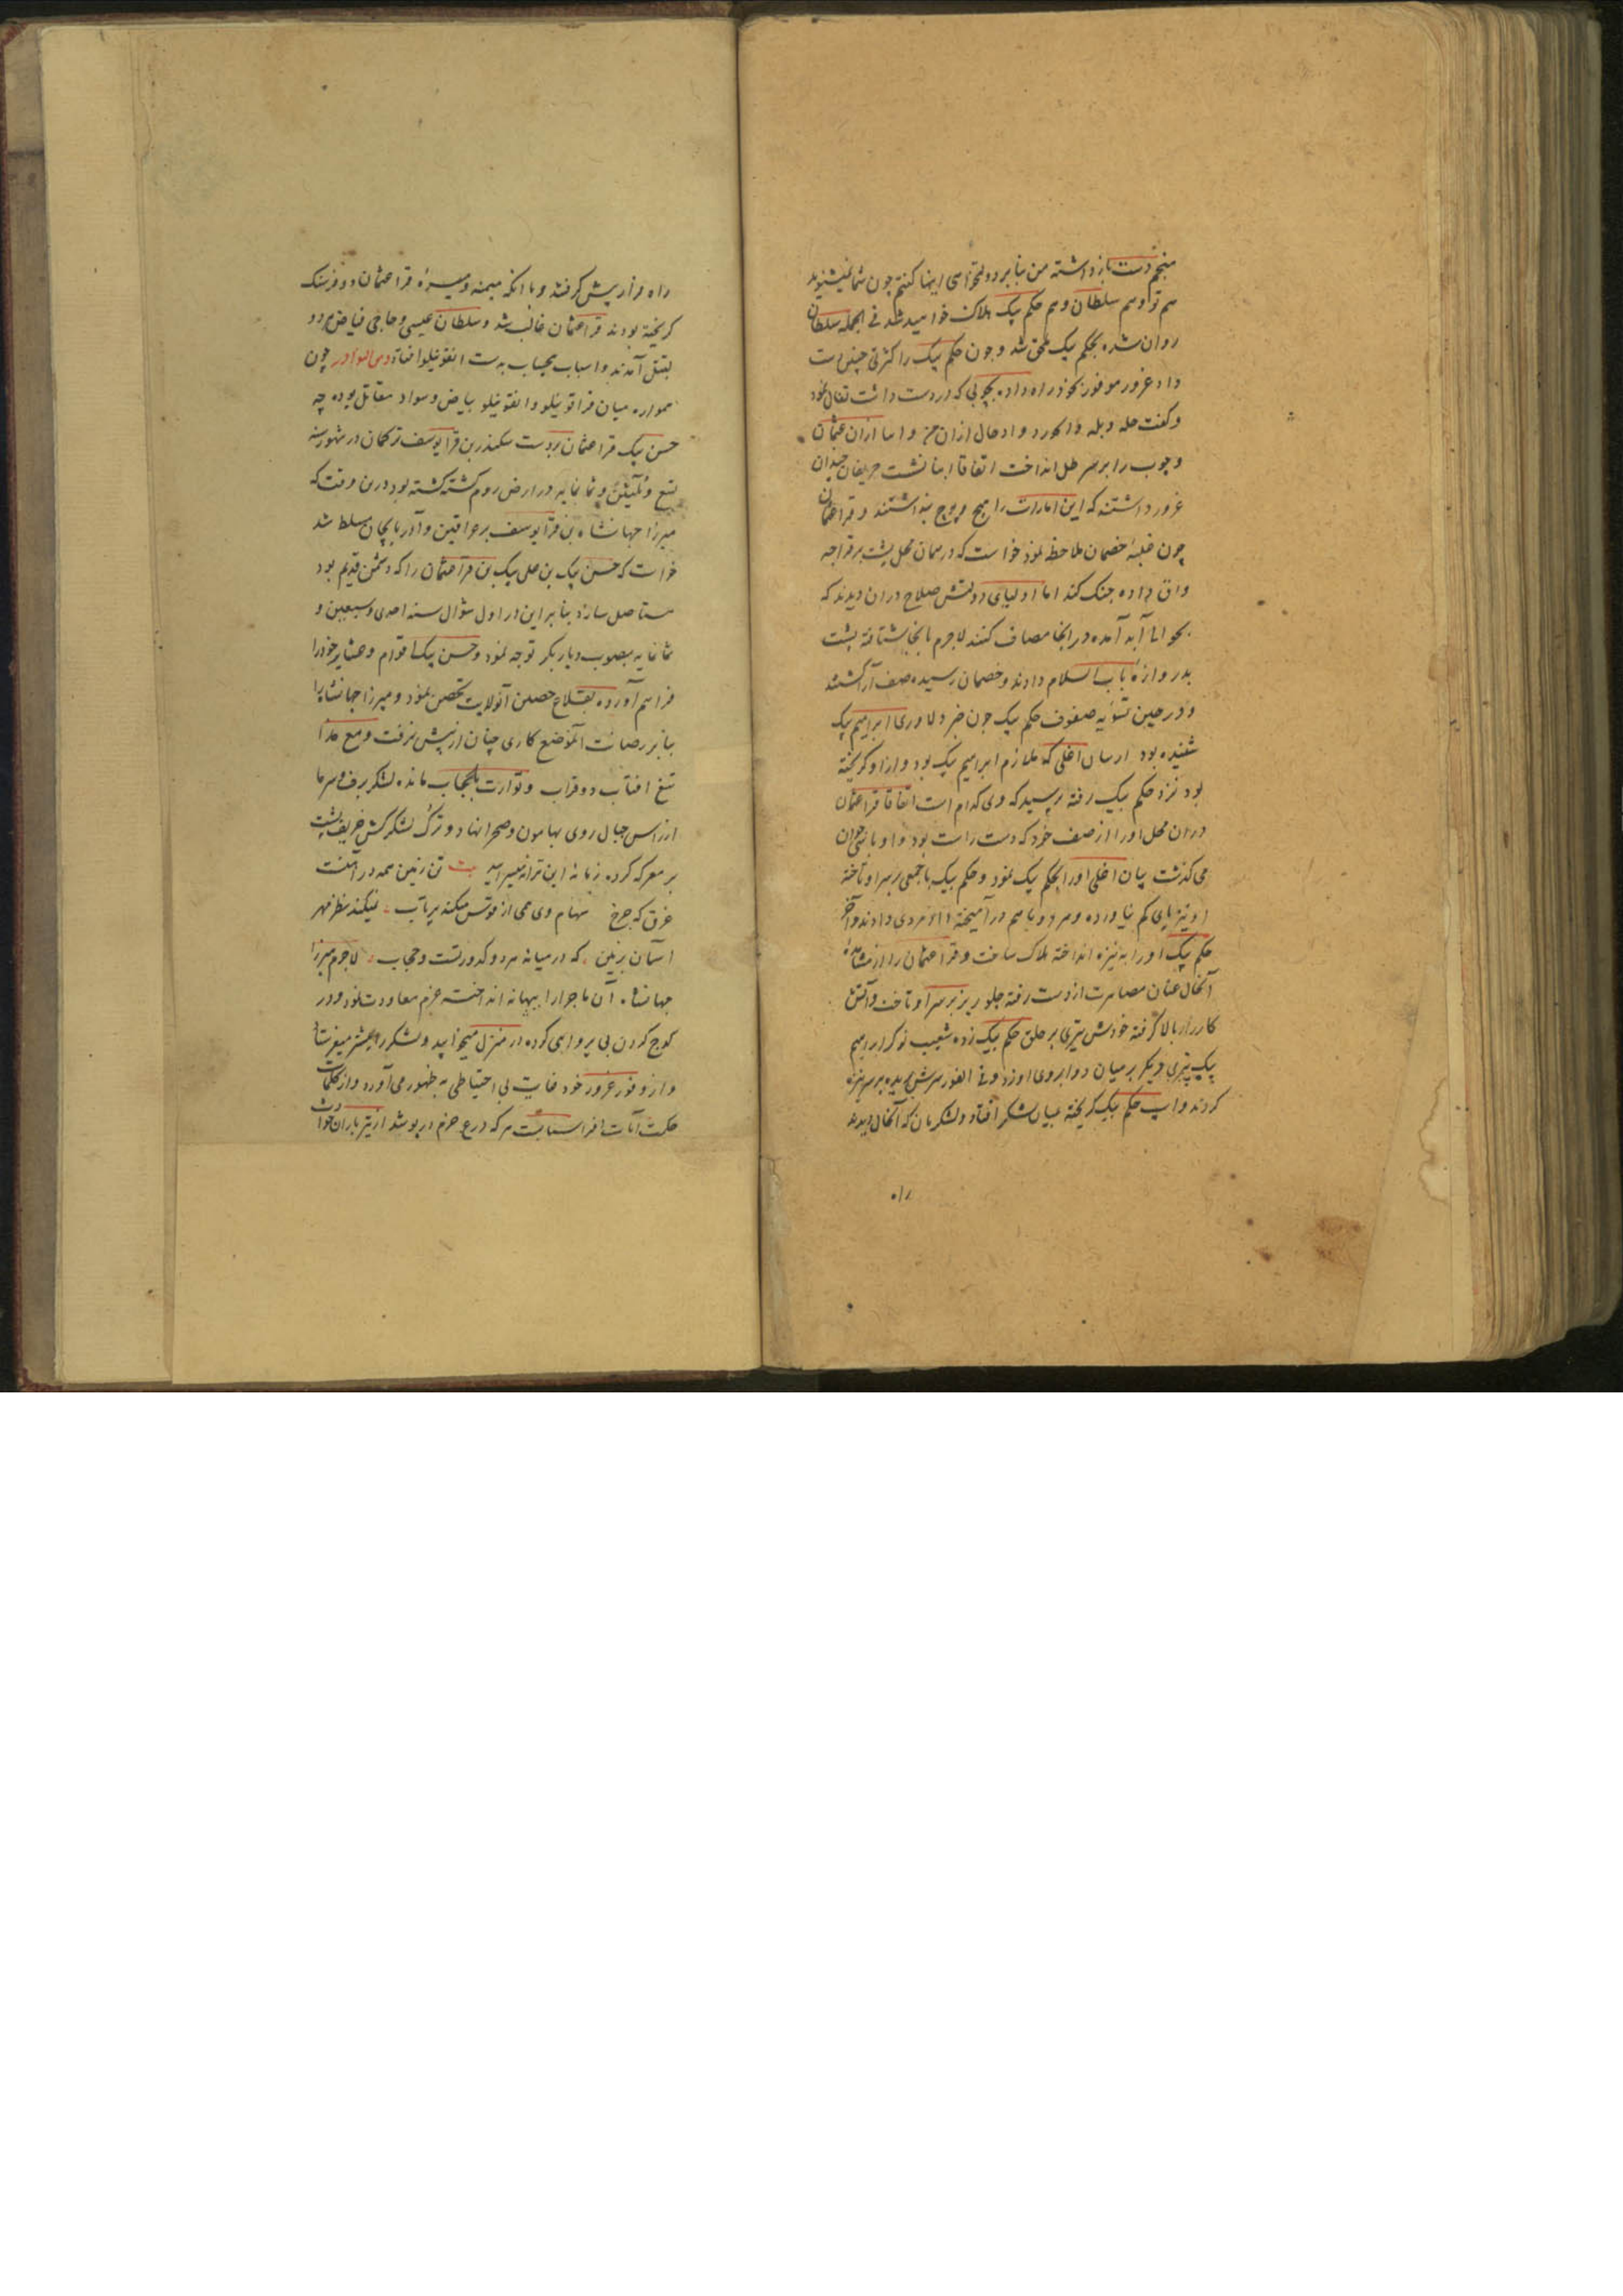 منجم دست بازداشته من بنابر دولتخواهی اینها گفتم چون شما نمیشنوید
هم تو و هم سلطان و هم حکم بیک هلاک خواهید شد فی الجمله سلطان
روان شده بحکم بیک ملحق شد و چون حکم بیک را کثرتی چنین دست
داد غرور موفور بخود راه داده بچوبی که در دست داشت تفال نمود
و گفت حله و بله
و چوب را بر سر طبل انداخت اتفاقا حریفان چندان
غرور داشتند که این امارات را هیچ و پوچ پنداشتند و قراعثمان
چون غلبهٔ خصمان ملاحظه نمود خواست که در همان محل پشت بر قراجه
داق داده جنک کند اما اولیای دولتش صلاح دران دیدند که
آمده در انجا مصاف کنند لاجرم بانجا شتافته پشت
بدروازهٔ باب السلام دادند و خصمان رسیده صف آرا گشتند
و در حین تسویه صفوف حکم بیک چون خبر دلاوری ابراهیم بیک
شنیده بود که ملازم ابراهیم بیک بود و ازو گریخته
بود نزد حکم بیک رفته پرسید که وی کدام است اتفاقا قراعثمان
دران محل او را از صف خود که دست راست بود
می گذشت او را بحکم بیک نمود و حکم بیک با جمعی بر سر او تاخته
او نیز پای کم نیاورده و هر دو باهم در آمیخته داد مردی دادند و آخر
حکم بیک او را به نیزه انداخته هلاک ساخت و قراعثمان را از مشاهدهٔ
آنحال عنان مصابرت از دست رفته جلو ریز بر سر او تاخت و آتش
کارزار بالا گرفته خودش تیری بر حلق حکم بیک زده شعیب نوکر ابراهیم
بیک تیری دیگر بر میان دو ابروی او زد و فی الفور سرش بریده بر سر نیزه
کردند و اسپ حکم بیک گریخته میان لشکر افتاد و لشکریان که آنحال دیدند
راه
راه فرار پیش گرفتند و با آنکه میمنه و میسرهٔ قراعثمان دو فرسنک
گریخته بودند قراعثمان غالب شد و سلطان عیسی و حاجی فیاض هر دو
بقتل آمدند و اسباب بیحساب بدست اققوینلو افتاد چون
همواره میان قراقوینلو و اققوینلو بیاض و سواد مقاتل بوده چه
حسن بیک قراعثمان بر دست سکندر بن قرایوسف ترکمان در شهور سنه
تسع و ثلثین و ثمانمایه در ارض روم کشته گشته بود درین وقت که
میرزا جهانشاه بن قرایوسف بر عراقین و آذربایجان مسلط شد
خواست که حسن بیک بن علی بیک بن قراعثمان را که دشمن قدیم بود
مستاصل سازد بنابراین در اول شوال سنه احدی و سبعین و
ثمانمایه بصوب دیاربکر توجه نمود و حسن بیک اقوام و عشایر خود را
فراهم آورده بقلاع حصین آنولایت تحصن نمود و میرزا جهانشاه را
بنابر رصانت آنموضع کاری چنان از پیش نرفت و مع هذا
تیغ افتاب در قراب و توارت بالحجاب مانده لشکر برف و سرما
از راس جبال روی بهامون و صحرا نهاد و ترک لشکرکش خریف پشت
بر معرکه کرده زمانه این ترانه میسرایید بیت تن زمین همه در آهنست
غرق که چرخ سهام وی همی از قوس میکند پرتاب نمیکند نظر مهر
آسمان بزمین که در میانه هر دو کدورتست و حجاب لاجرم میرزا
جهانشاه آن ماجرا را بیهانه انداخته عزم معاودت نمود و در
کوچ کردن بی پروایی کرده در منزل میخوابید و لشکر را پیشتر میفرستاد
و از وفور غرور خود غایت بی احتیاطی به ظهور می آورد و از کلمات
حکمت آیات افراسیابست هر که درع حزم در پوشد از تیر باران حوادث